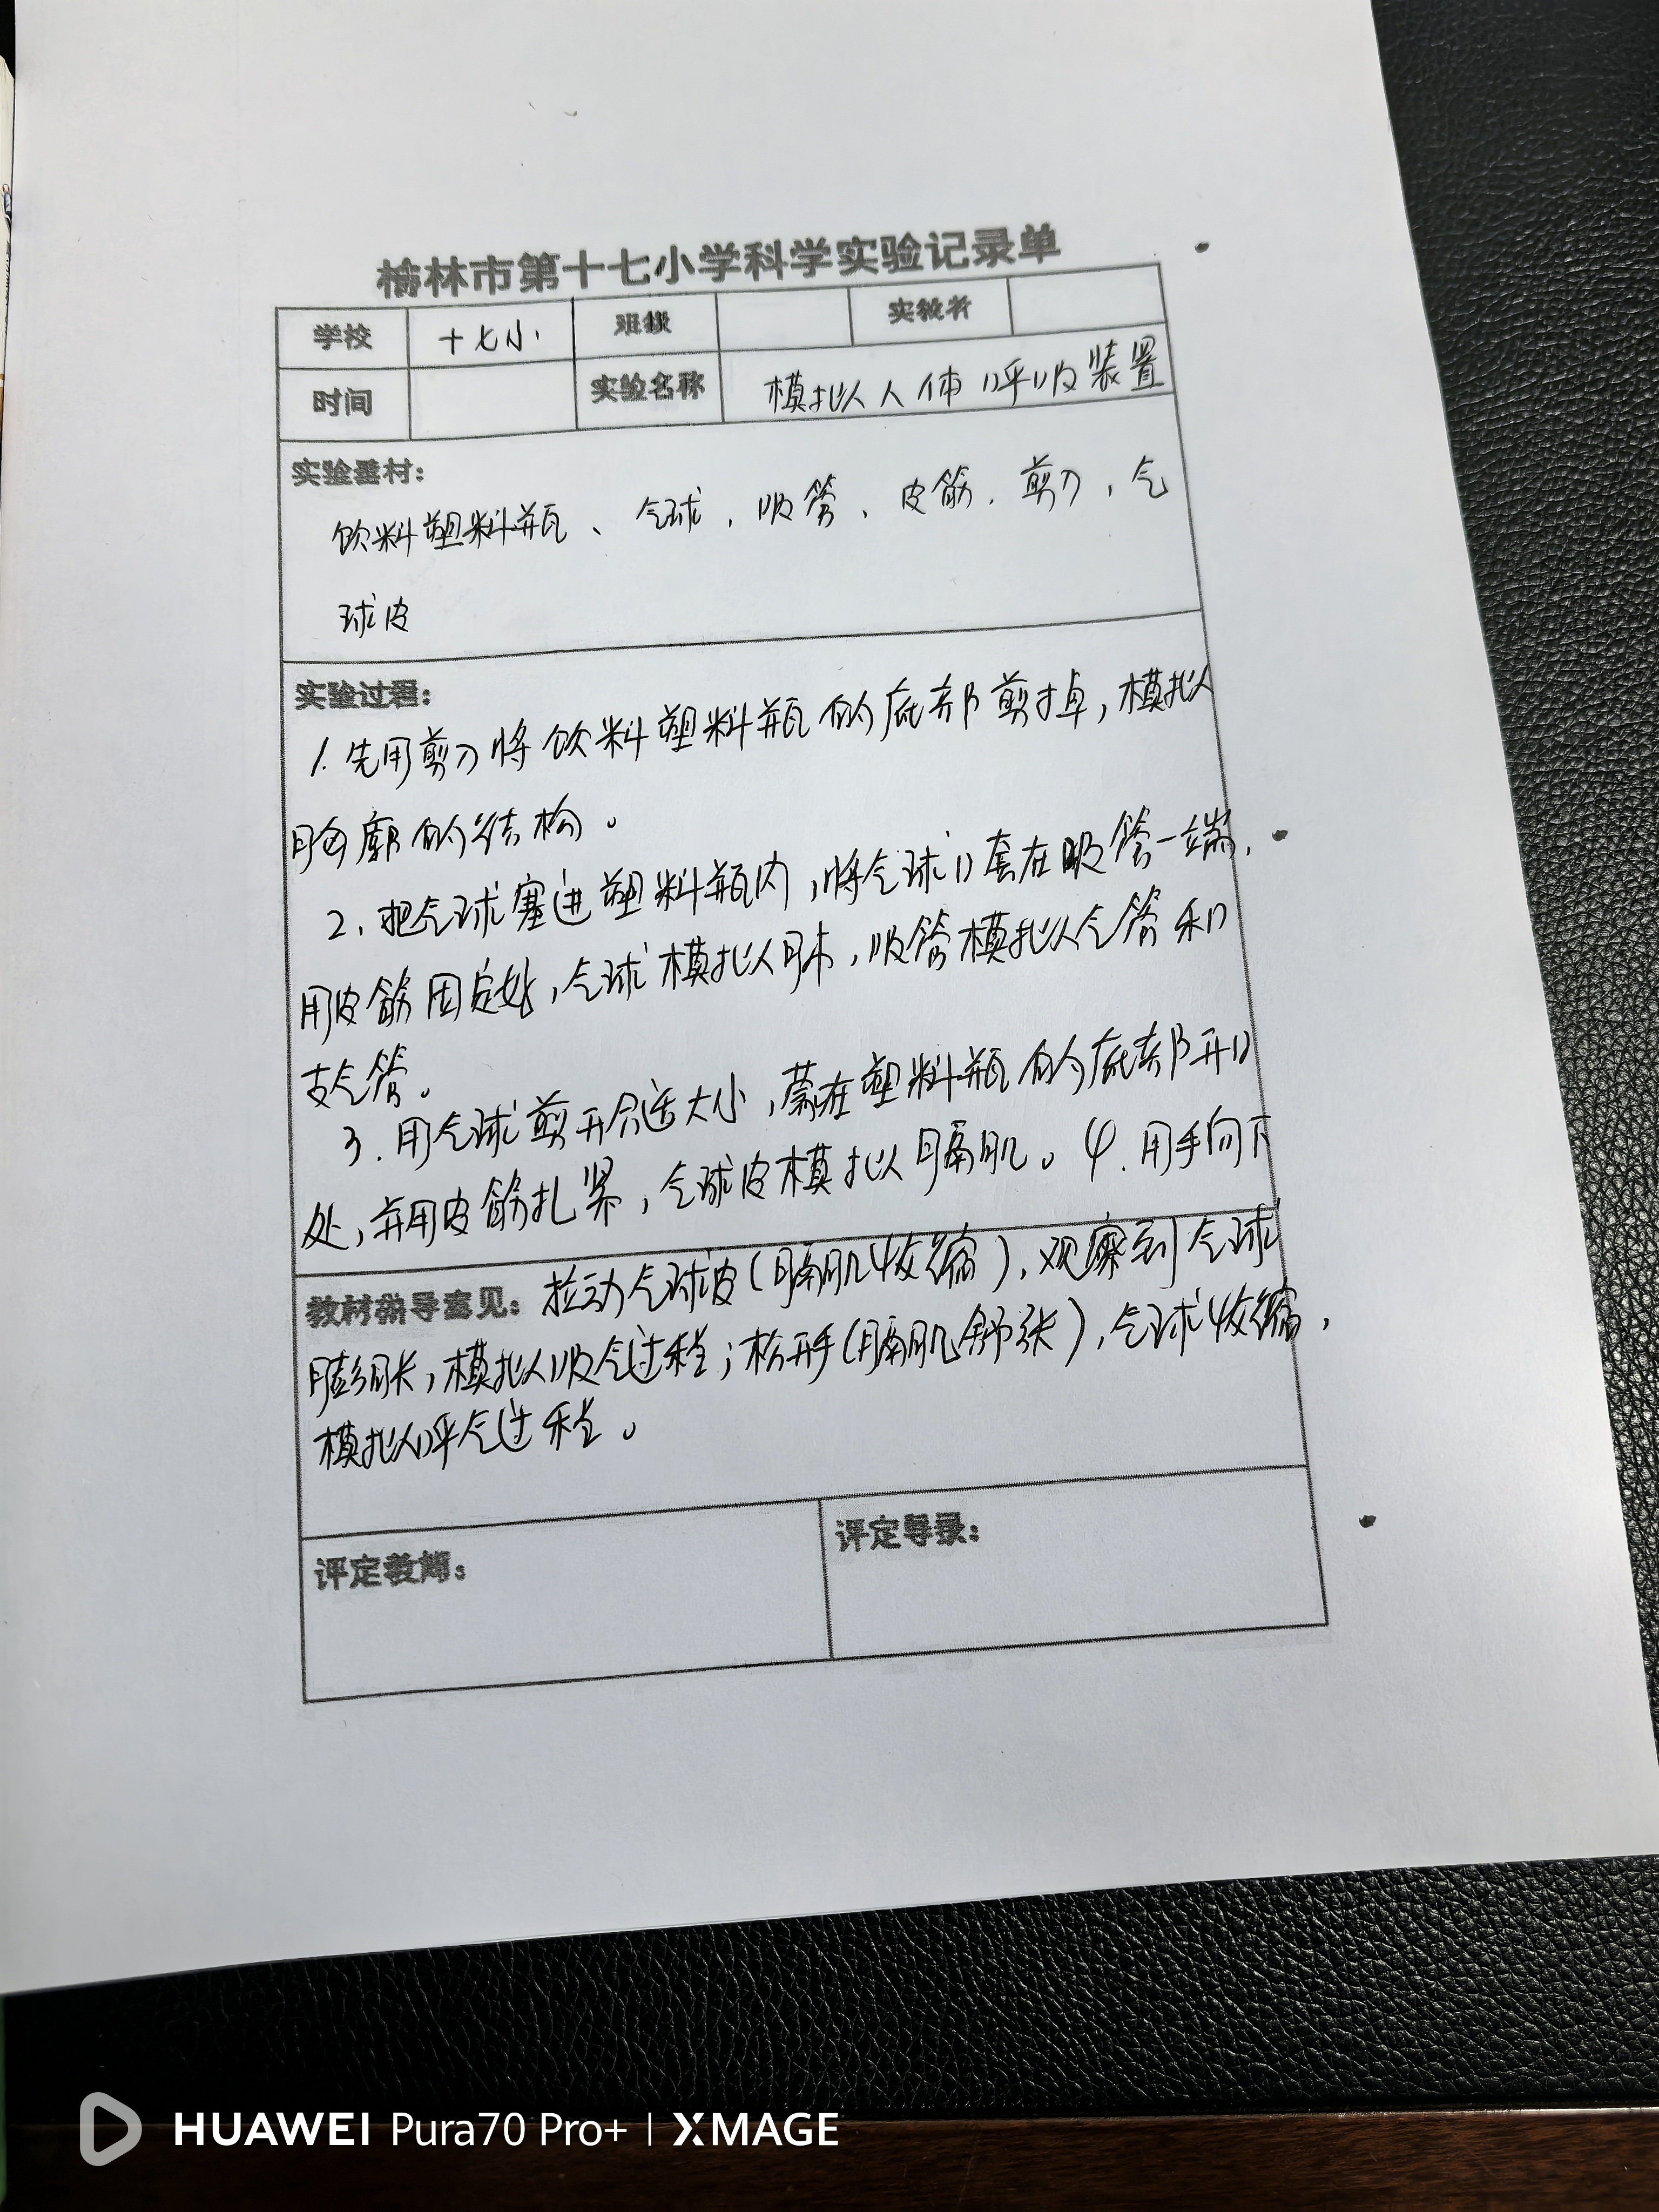 榆林市第十七小学科学实验记录单
学校 十七小 班级 实教者
时间 实验名称 模拟人体呼吸装置
实验器材:
饮料塑料瓶、气球、吸管、皮筋、剪刀、气
球皮
实验过程:
1.先用剪刀将饮料塑料瓶的底部剪掉,模拟
胸廓的结构。
2.把气球塞进塑料瓶内,将气球口套在吸管一端,
用皮筋固定好,气球模拟肺,吸管模拟气管和
支气管。
3.用气球剪开合适大小,蒙在塑料瓶的底部开口
处,并用皮筋扎紧,气球皮模拟膈肌。4.用手向下
教材指导意见: 拉动气球皮(膈肌收缩),观察到气球
膨胀,模拟吸气过程;松开手(膈肌舒张),气球收缩,
模拟呼气过程。
评定教师: 评定等级:
HUAWEI Pura70 Pro+ | XMAGE